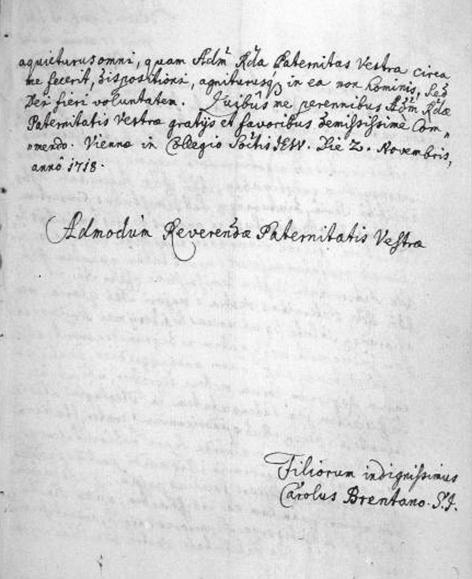 aquieturus omni, quam Adm̃ Rd̃a Paternitas Vestra circa
me fecerit, dispositioni, agniturusq́ in ea non hominis, sed
Dei fieri voluntatem. Quibus me perennibus Adm̃ Rd̃æ
Paternitatis Vestræ gratijs et favoribus demississimè Com„
mendo. Viennæ in Collegio Soc̃tis JESU. Die 2. Novembris,
annô 1718.
Admodùm Reverendæ Paternitatis Vestræ
Filiorum indignissimus
Carolus Brentano. S.J.